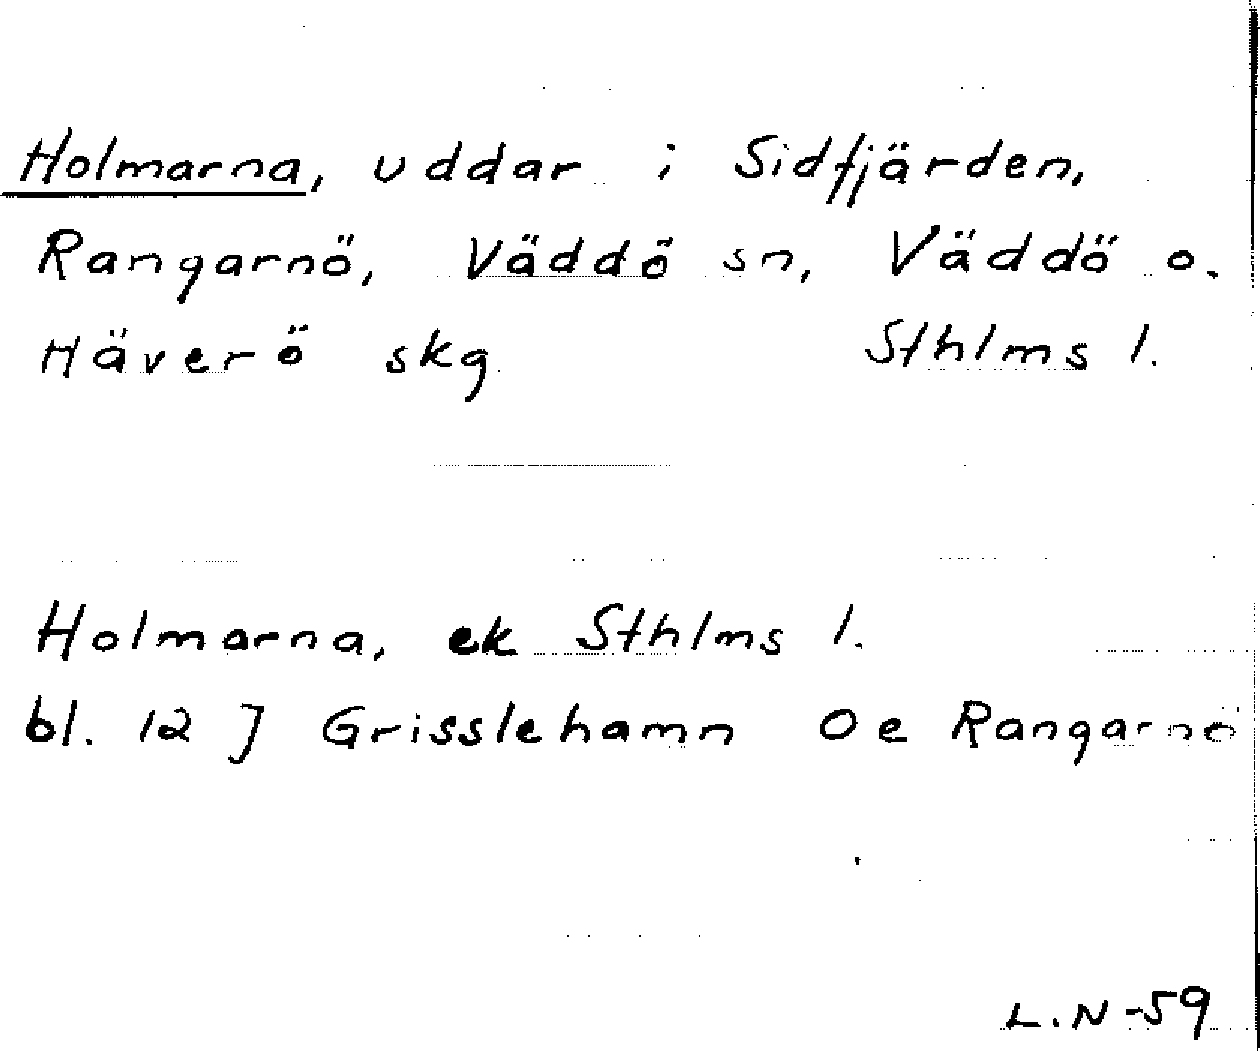 Holmarna, uddar i Sidfjärden,
Rangarnö, Väddö sn, Väddö o.
Häverö skg Sthlms l.
Holmarna, ek Sthlms l.
bl. 12 J Grisslehamn Oe Rangarnö
L.N-59